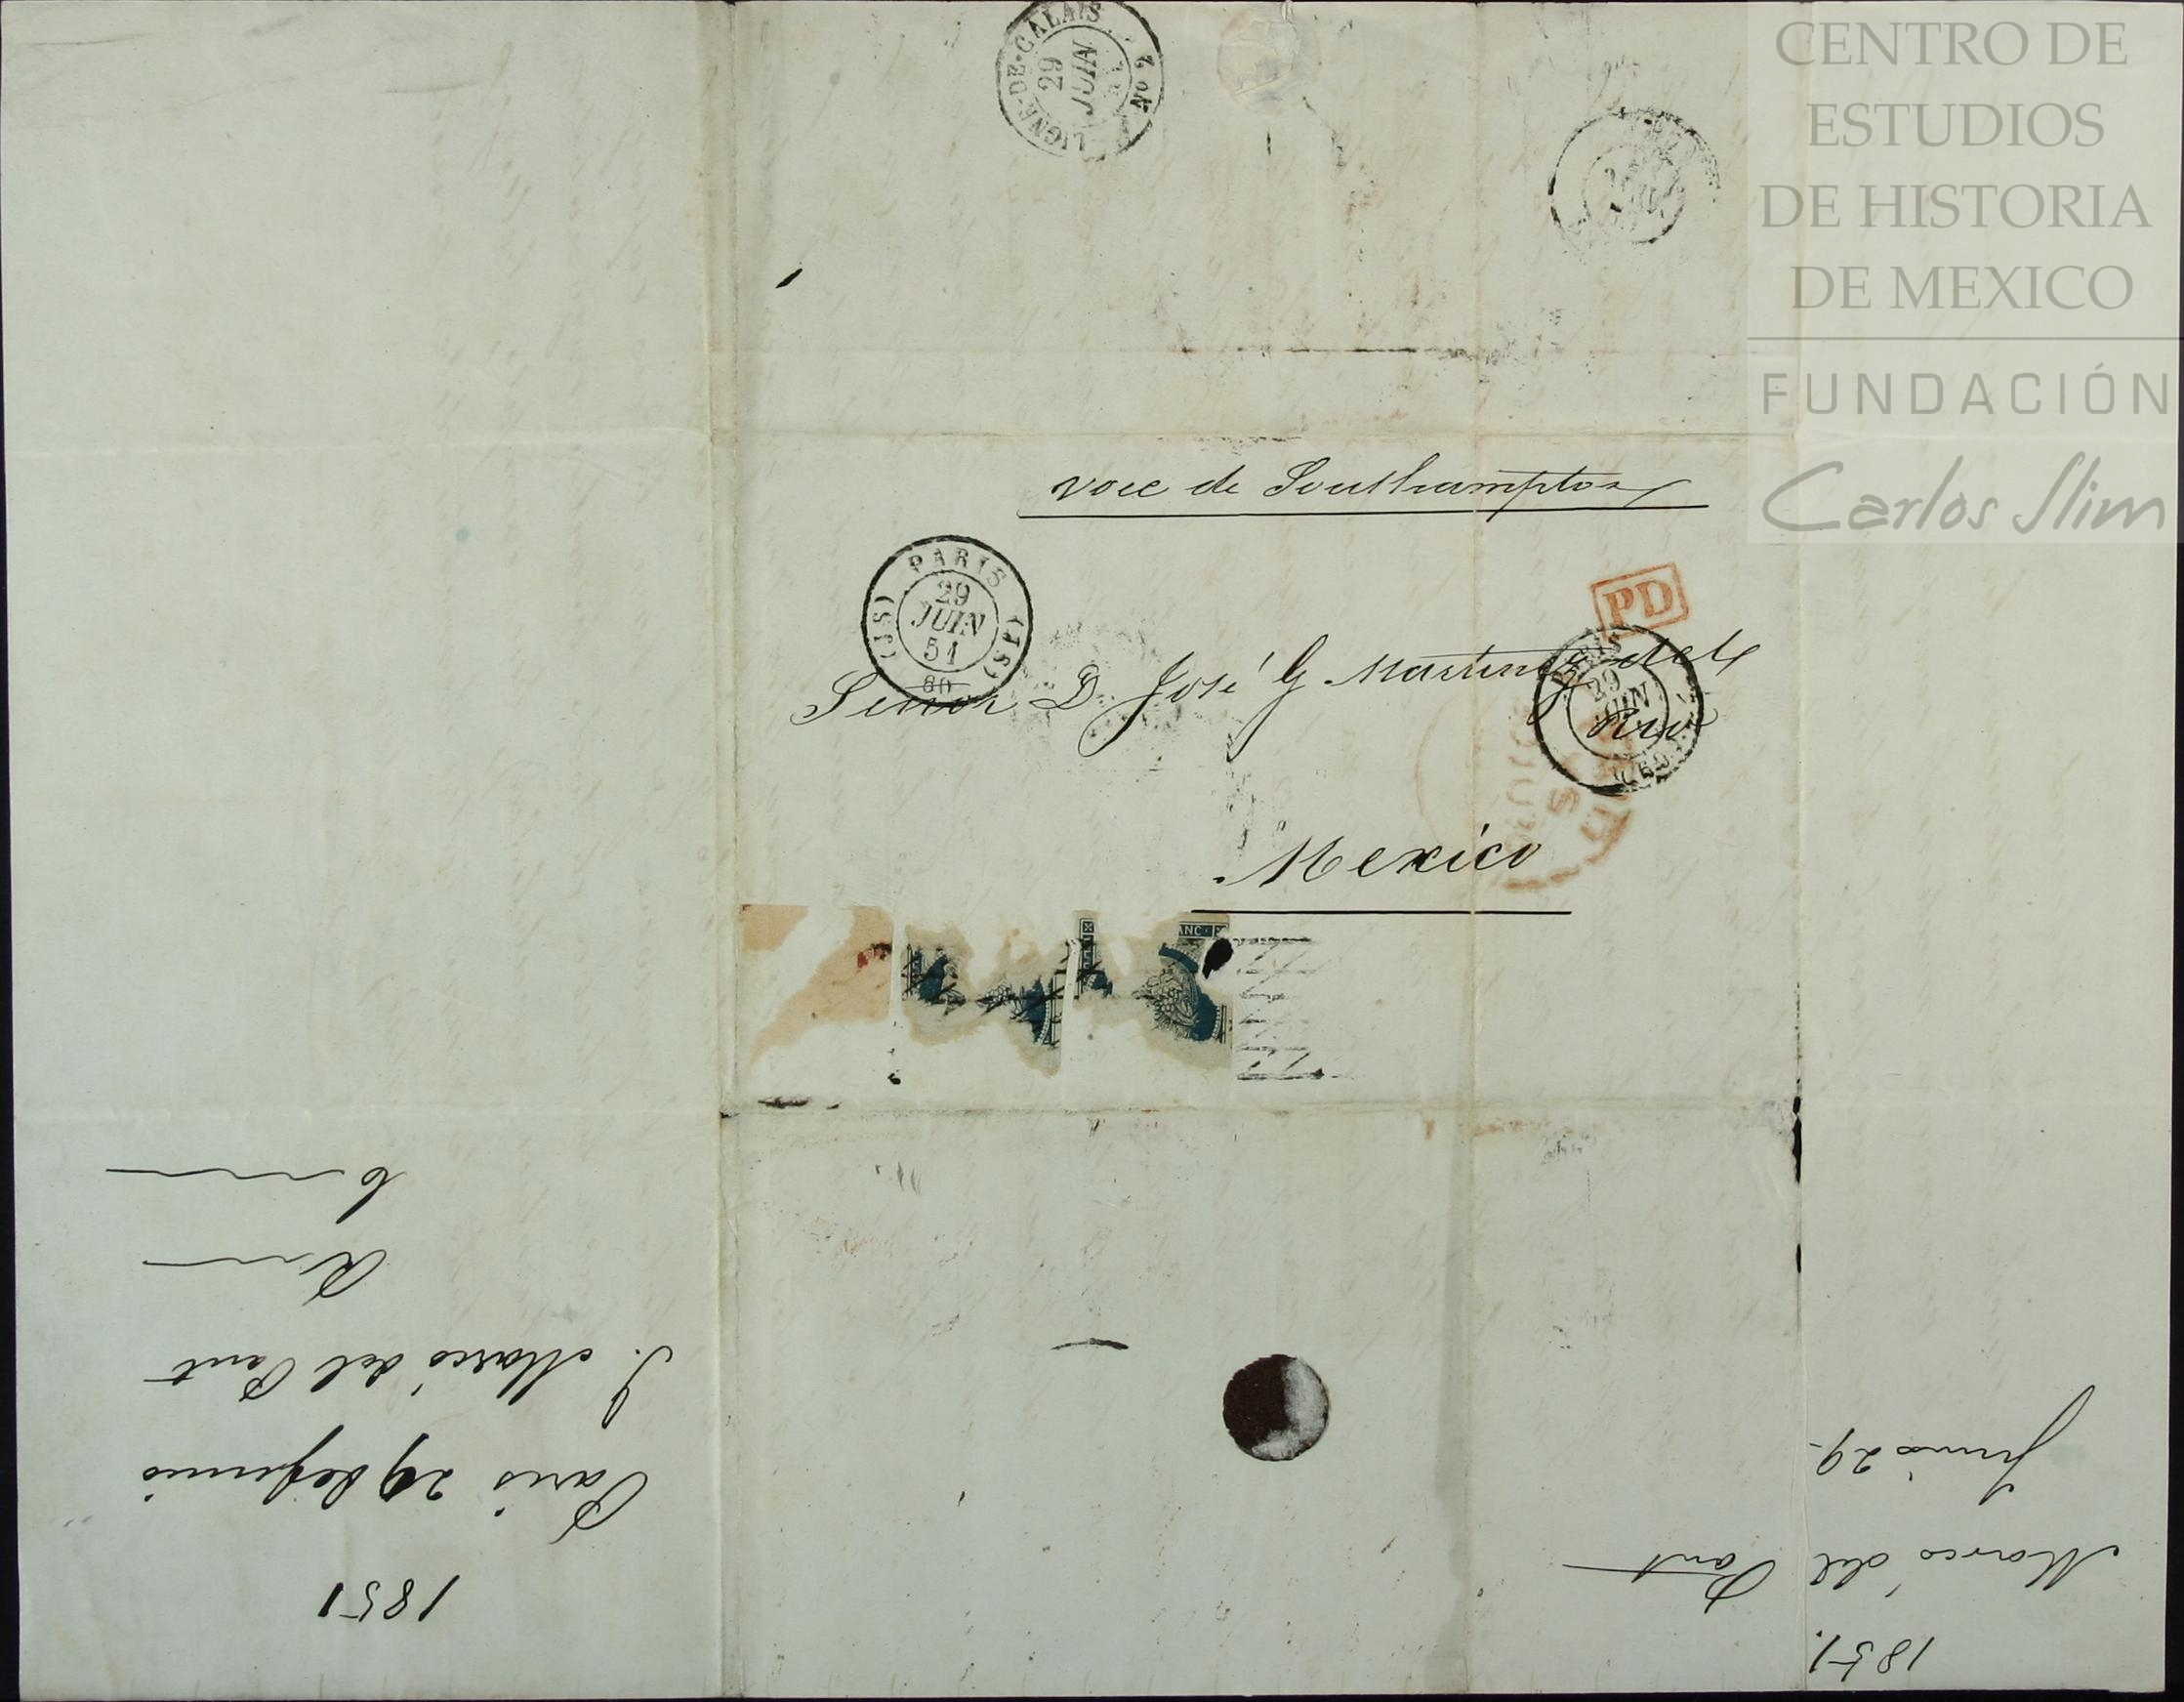 LIGNE-DE-CALAIS
No 2
29
JUIN
CENTRO DE
ESTUDIOS
DE HISTORIA
DE MEXICO
FUNDACIÓN
Carlos Slim
voie de Southampton
PARIS
(JS) (JS)
29
JUIN
51
60
PD
Señor D. José G Martinez del
Rio
29
JUIN
(60)
Mexico
1851
Paris 29 de junio
J. Marcó del Pont
R
C
1851.
Marcó del Pont
Junio 29.